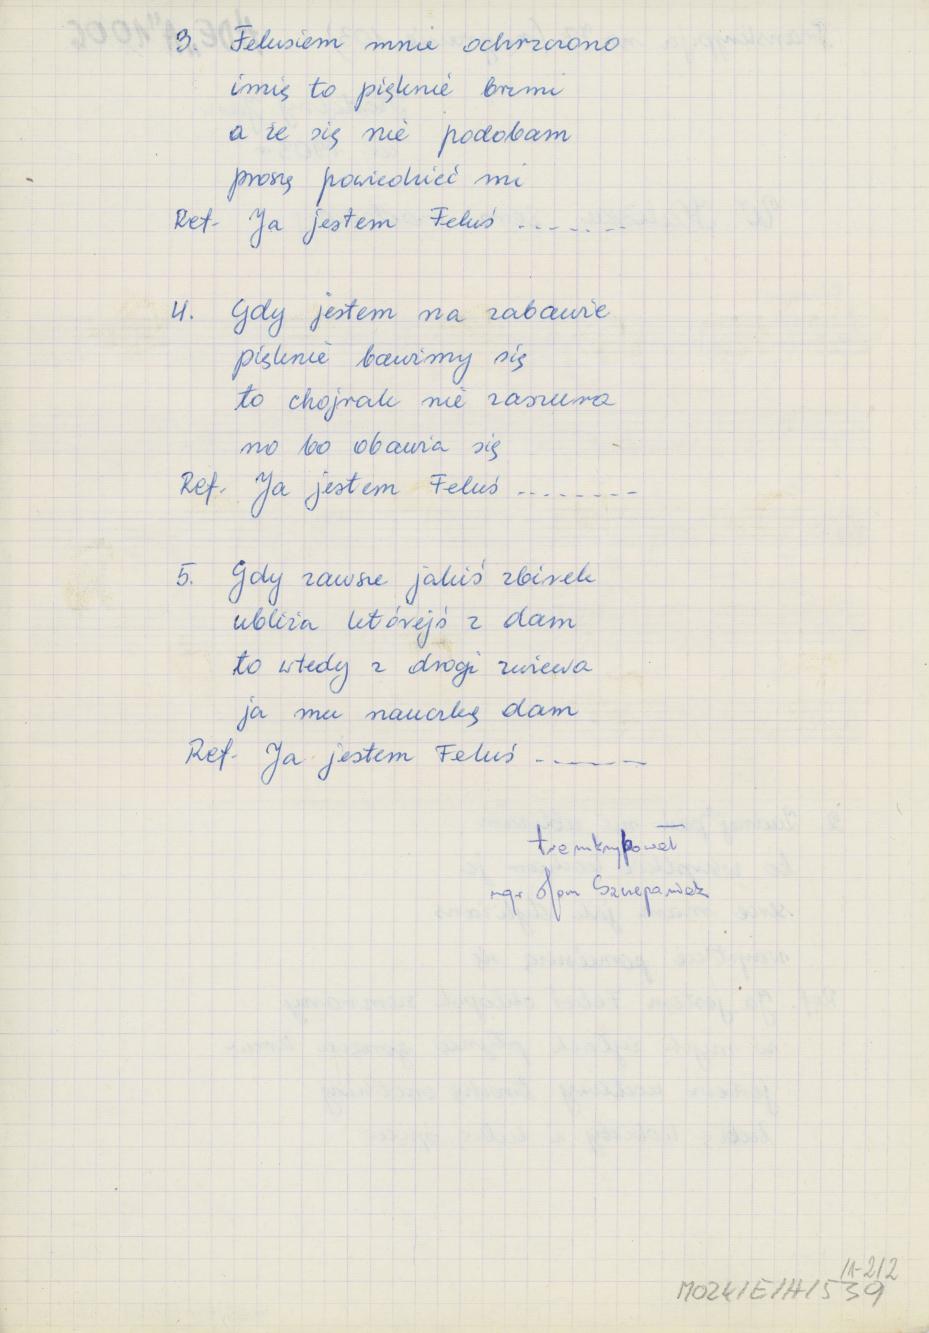 3. Felusiem mnie ochrzczono
imię to pięknie brzmi
a że się nie podobam
proszę powiedzieć mi
Ref. Ja jestem Feluś ........
4. Gdy jestem na zabawie
pięknie bawimy się
to chojrak nie zaszura
no bo obawia się
Ref. Ja jestem Feluś ........
5. Gdy zawsze jakiś zbirek
ubliża którejś z dam
to wtedy z drogi zwiewa
ja mu nauczkę dam
Ref. Ja jestem Feluś ........
transkrybował
mgr Szczepaniak
11-2/2
MOZK/E/H/539